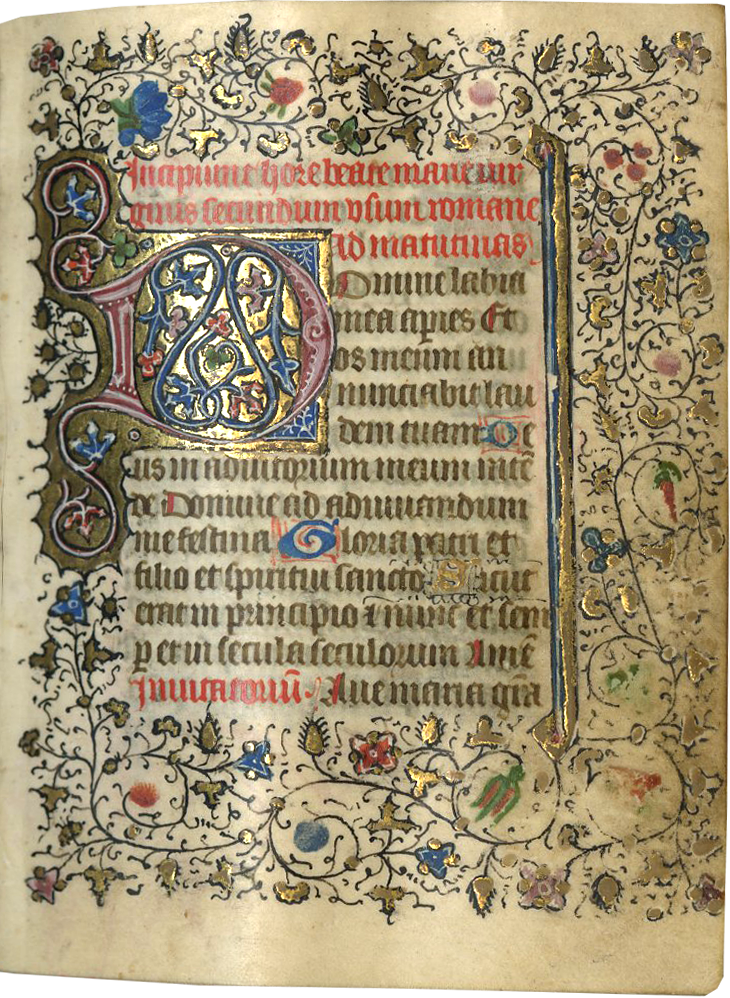 Incipiunt hore beate marie vir
ginis secundum vsum romane
ad matutinas
Domine labia
mea aperies Et
os meum an
nunciabit lau
dem tuam De
us in adiutorium meum intē
de Domine ad adiuuandum
me festina Gloria patri et
filio et spiritui sancto Sicut
erat in principio ⁊ nunc et sem
ꝑ et in secula seculorum Amē
Inuitatoriū. Aue maria gr̄a